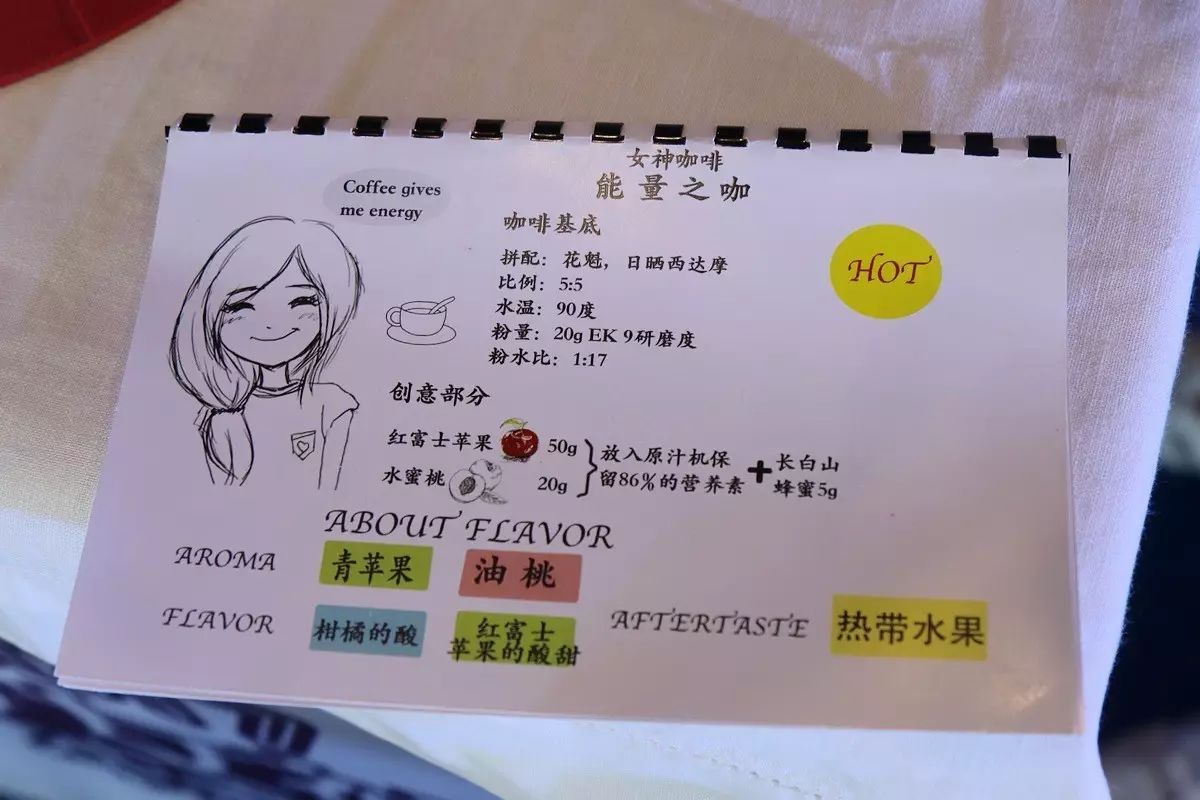 女神咖啡
能量之咖
Coffee gives
me energy
咖啡基底
HOT
拼配：花魁，日晒西达摩
比例：5:5
水温：90度
粉量：20g EK 9研磨度
粉水比：1:17
创意部分
红富士苹果 50g
水蜜桃 20g
放入原汁机保
留86%的营养素
+
长白山
蜂蜜5g
ABOUT FLAVOR
AROMA 青苹果 油桃
FLAVOR 柑橘的酸 红富士
苹果的酸甜
AFTERTASTE 热带水果